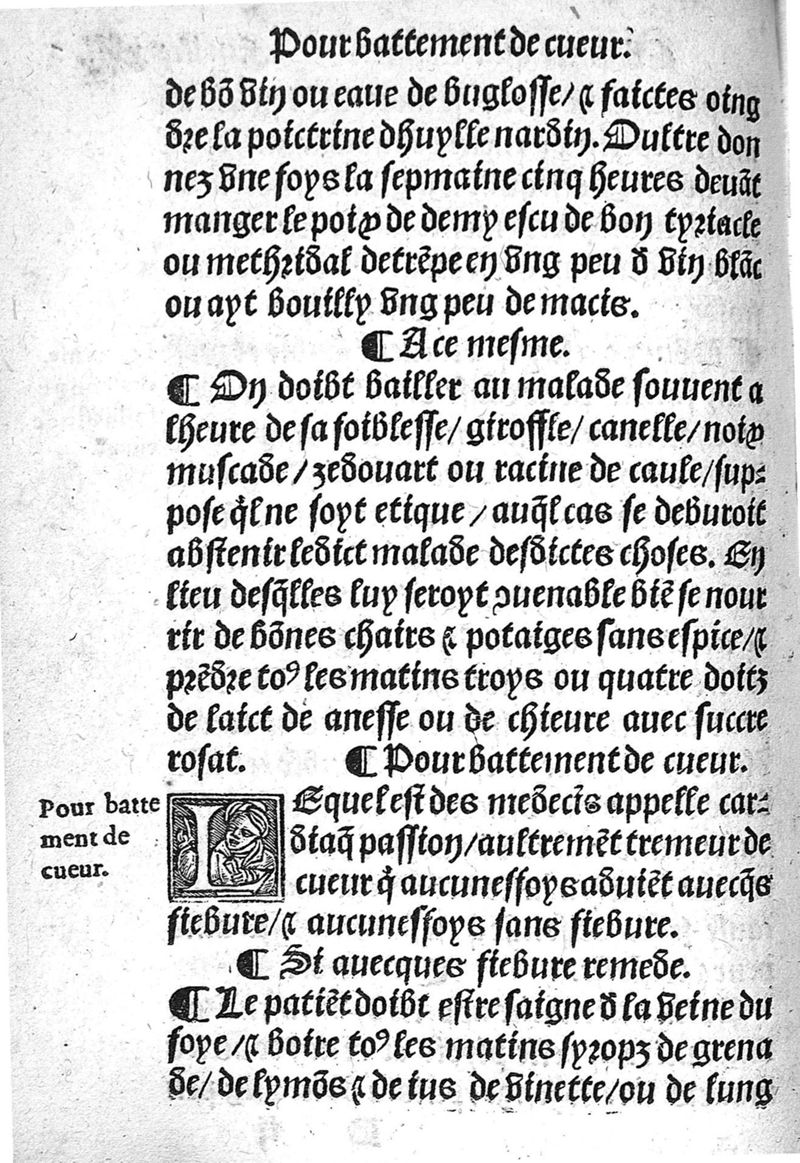 Pour battement de cueur.
de bõ vin ou eaue de buglosse/ ⁊ faictes oing
dre la poictrine dhuylle nardin. Oultre don
nez vne foys la sepmaine cinq heures deuãt
manger le poix de demy escu de bon tyriacle
ou methridal detrẽpe en vng peu d vin blãc
ou ayt bouilly vng peu de macis.
¶ A ce mesme.
¶ On doibt bailler au malade souuent a
lheure de sa foiblesse/ giroffle/ canelle/ noix
muscade/ zedouart ou racine de caule/ sup-
pose q̃l ne soyt etique/ auq̃l cas se deburoit
abstenir ledict malade desdictes choses. En
lieu desq̃lles luy seroyt ꝯuenable biẽ se nour
rir de bõnes chairs ⁊ potaiges sans espice/ ⁊
prẽdre toꝰ les matins troys ou quatre doitz
de laict de anesse ou de chieure auec succre
rosat. ¶ Pour battement de cueur.
Pour batte
ment de
cueur.
LEquel est des medecĩs appelle car-
diaq̃ passion/ aultremẽt tremeur de
cueur q̃ aucunesfoys aduiẽt auecq̃s
fiebure/ ⁊ aucunesfoys sans fiebure.
¶ Si auecques fiebure remede.
¶ Le patiẽt doibt estre saigne d la veine du
foye/ ⁊ boire toꝰ les matins syropz de grena
de/ de lymõs ⁊ de ius de vinette/ ou de lung